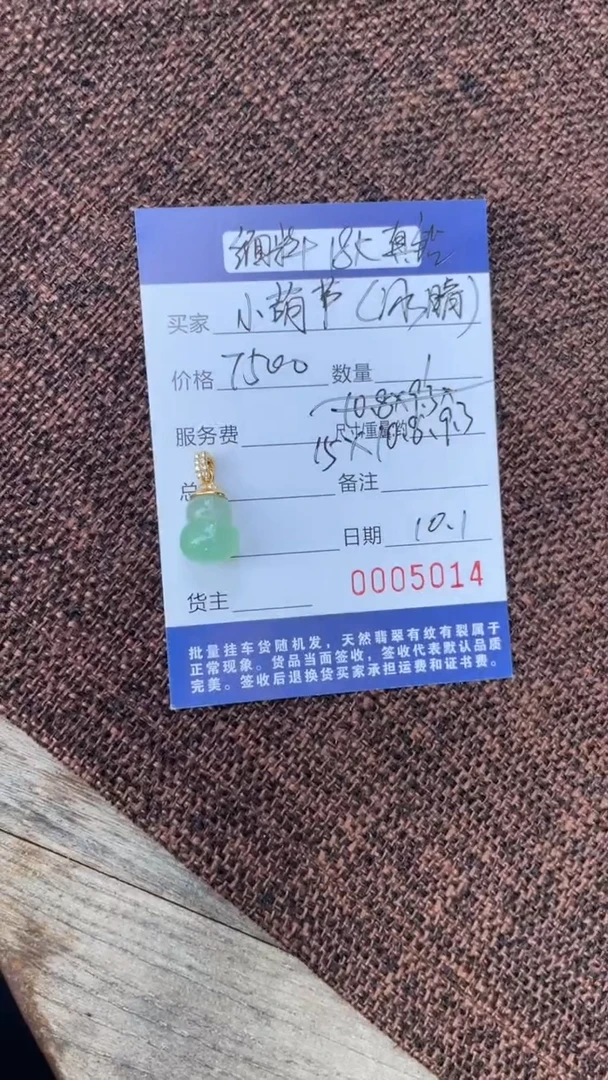 缅料+18K真钻
买家 小葫芦(冰晴)
价格 7500 数量 1
10.8×9.3×
服务费 尺寸重量约
15×10.8×9.3
总 备注
日期 10.1
0005014
货主
批量挂车货随机发，天然翡翠有纹有裂属于
正常现象。货品当面签收，签收代表默认品质
完美。签收后退换货买家承担运费和证书费。